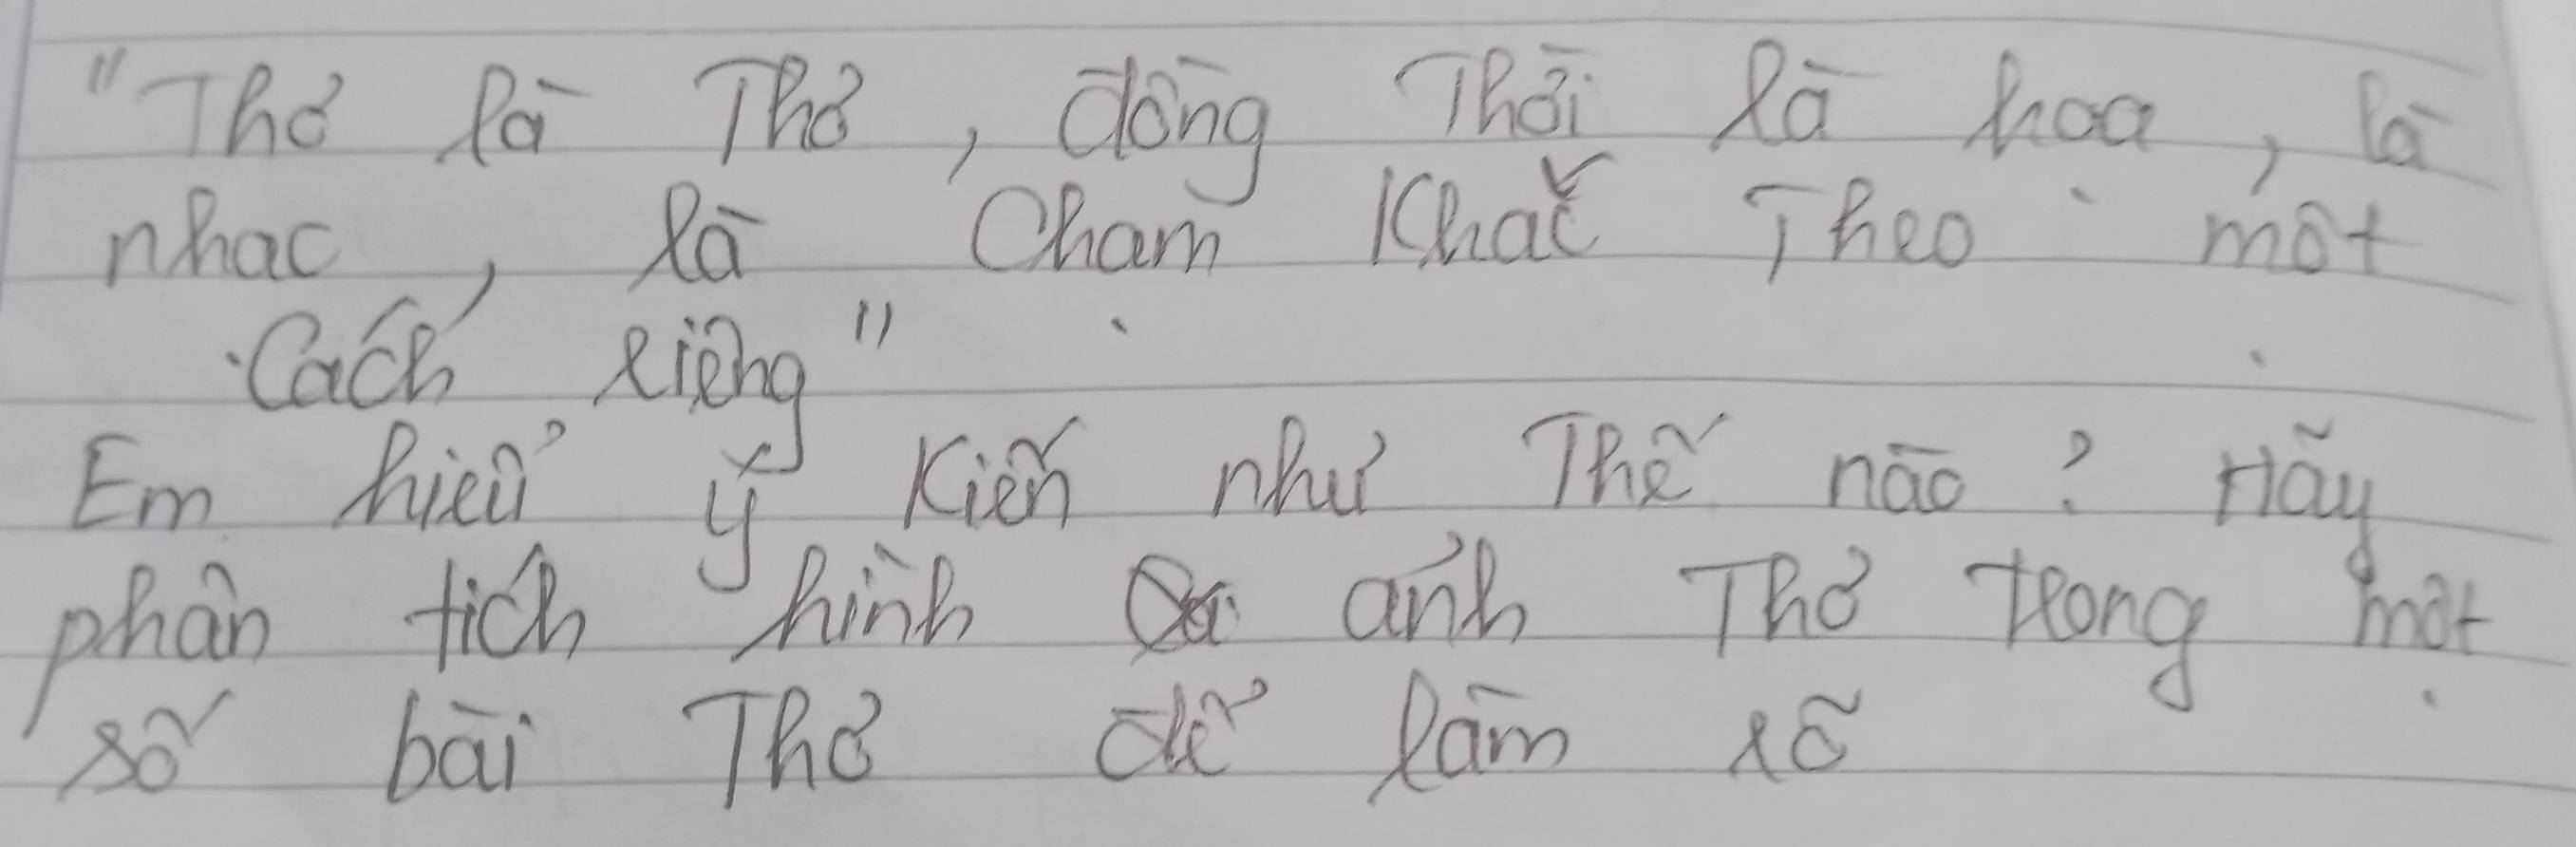 "Thơ là Thơ, đồng Thời là hoạ, là
nhạc, là Chạm Khắc Theo một
Cách riêng"
Em hiểu ý Kiến như Thế nào? Hãy
phân tích hình ảnh Thơ trong một
số bài Thơ để làm rõ